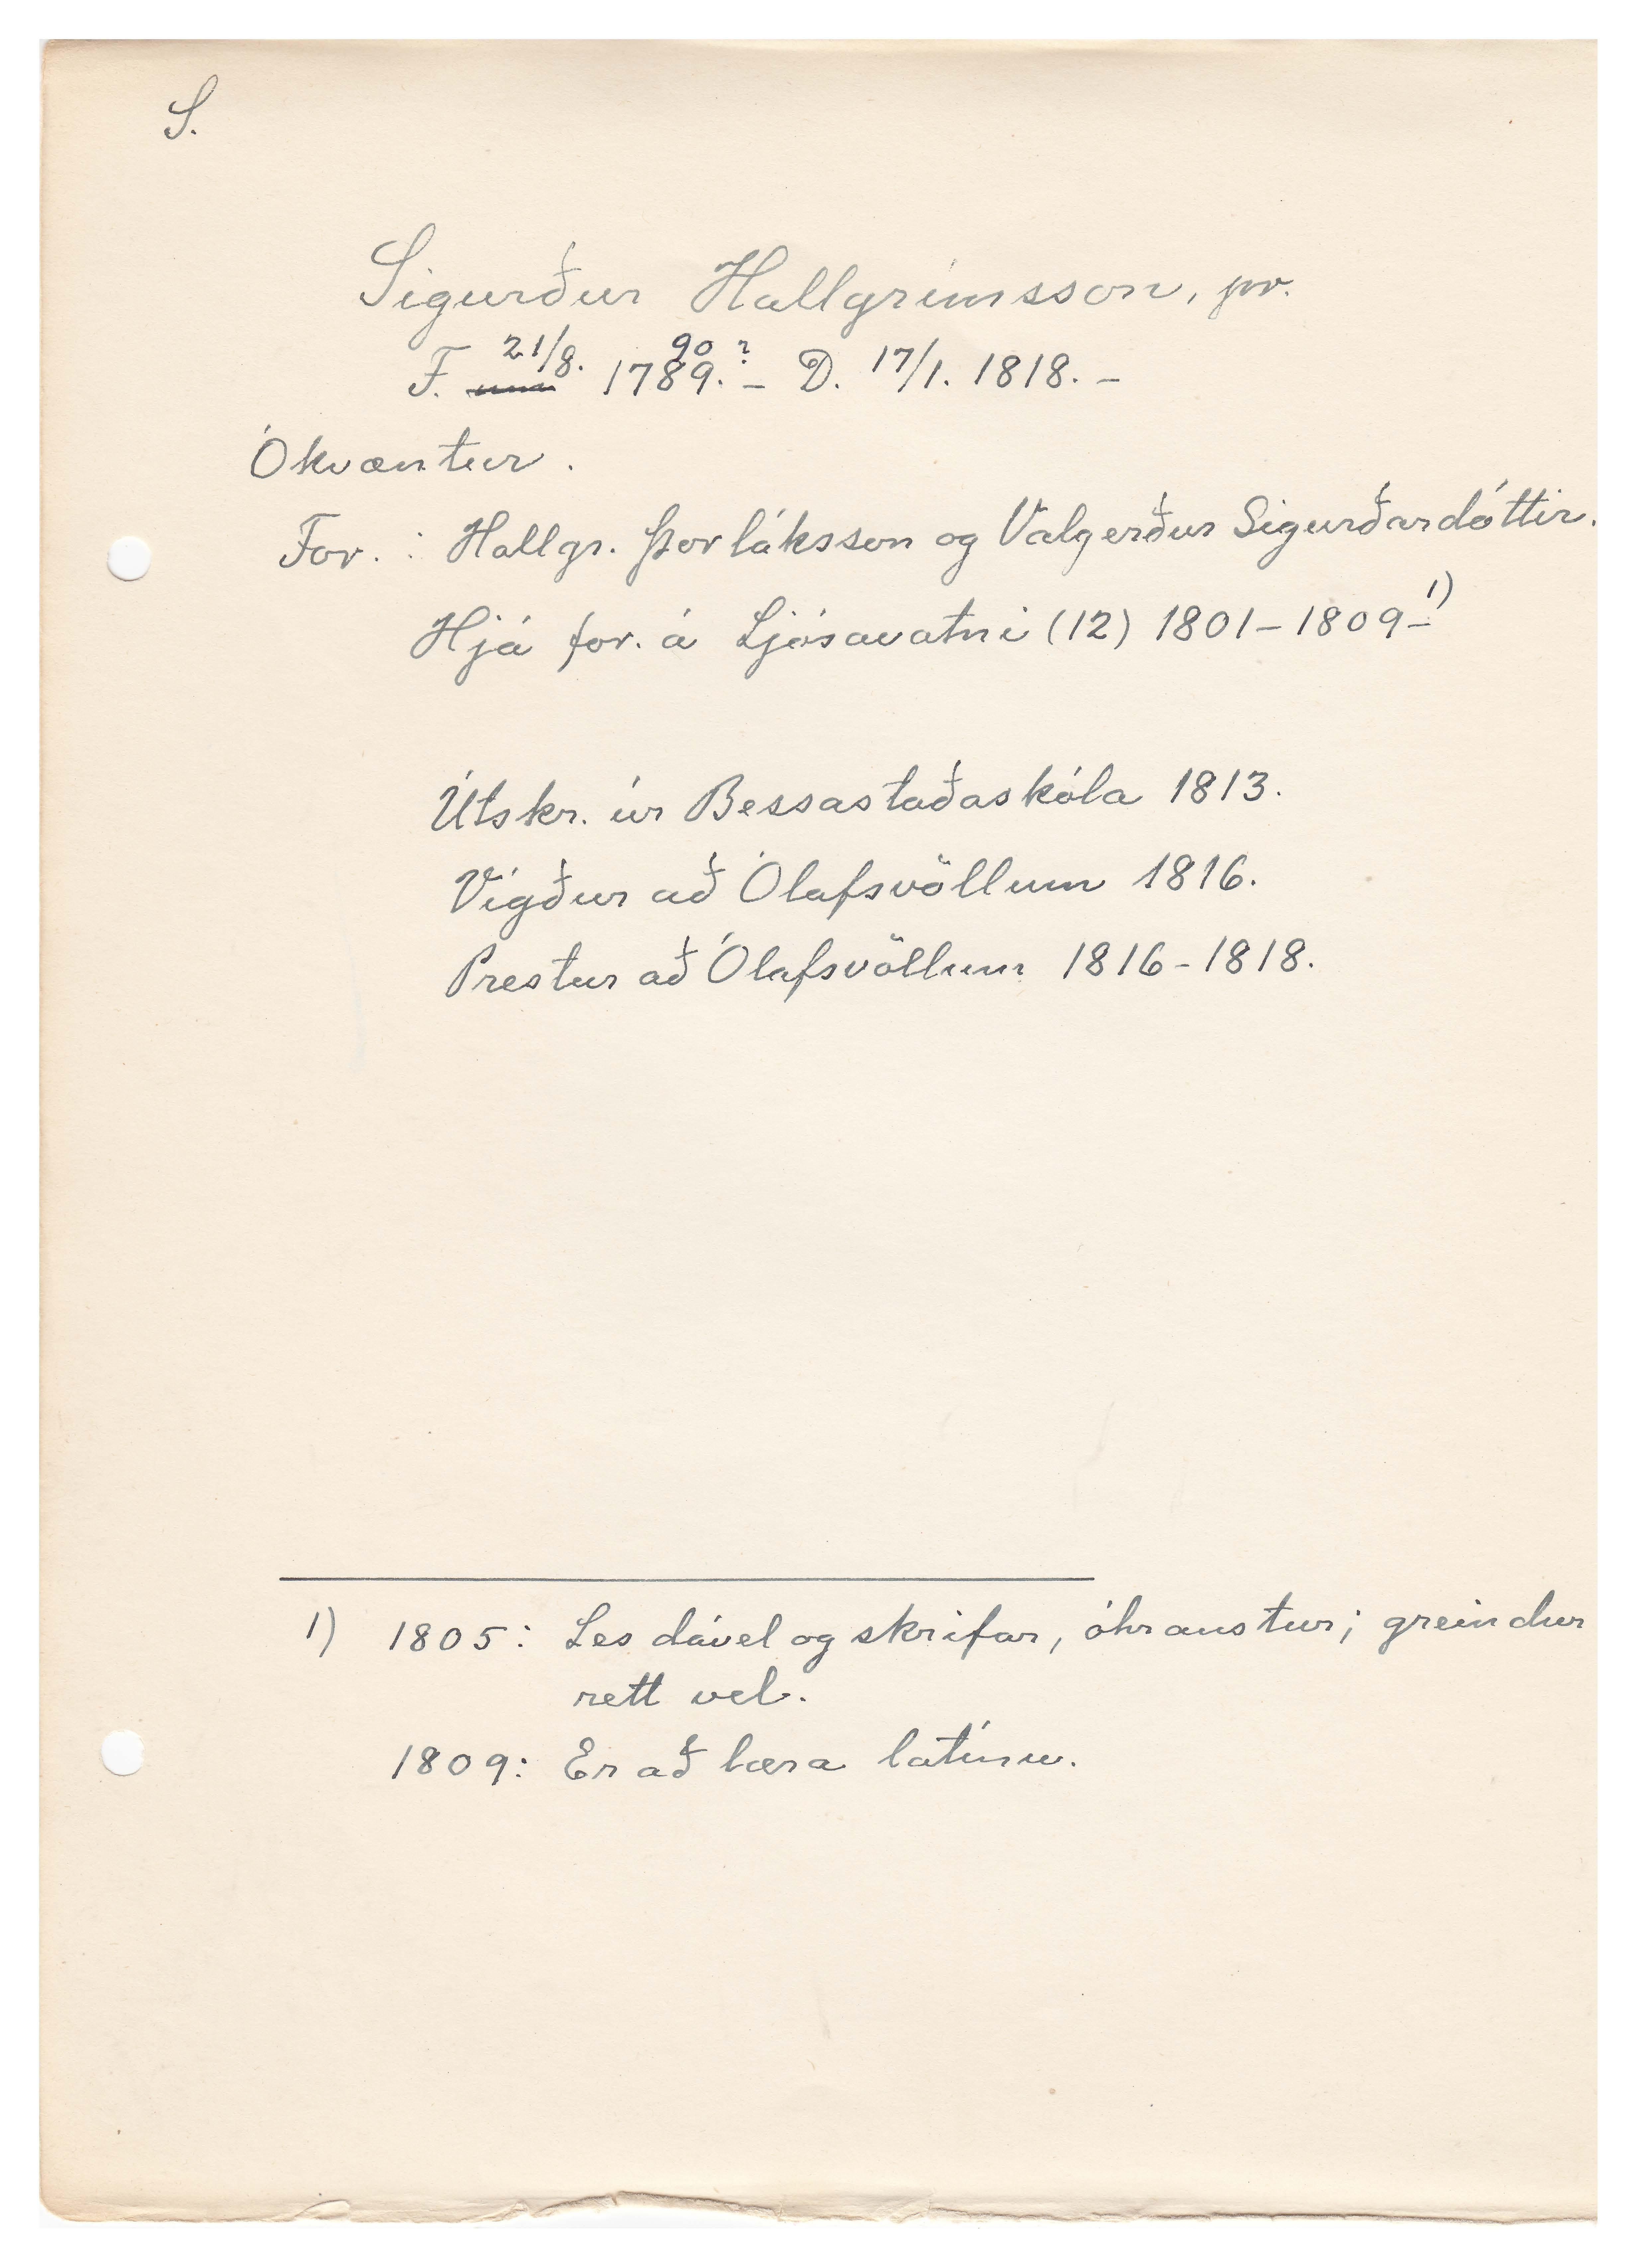 S.
Sigurður Hallgrímsson, pr.
21/8. 90?
F. 1789. – D. 17/1. 1818. –
Ókvæntur.
For. : Hallgr. Þorláksson og Valgerður Sigurðardóttir.
Hjá for. á Ljósavatni (12) 1801–1809– 1)
Útskr. úr Bessastaðaskóla 1813.
Vígður að Ólafsvöllum 1816.
Prestur að Ólafsvöllum 1816-1818.
1) 1805: Les dável og skrifar, óhraustur; greindur
rétt vel.
1809: Er að læra latínu.